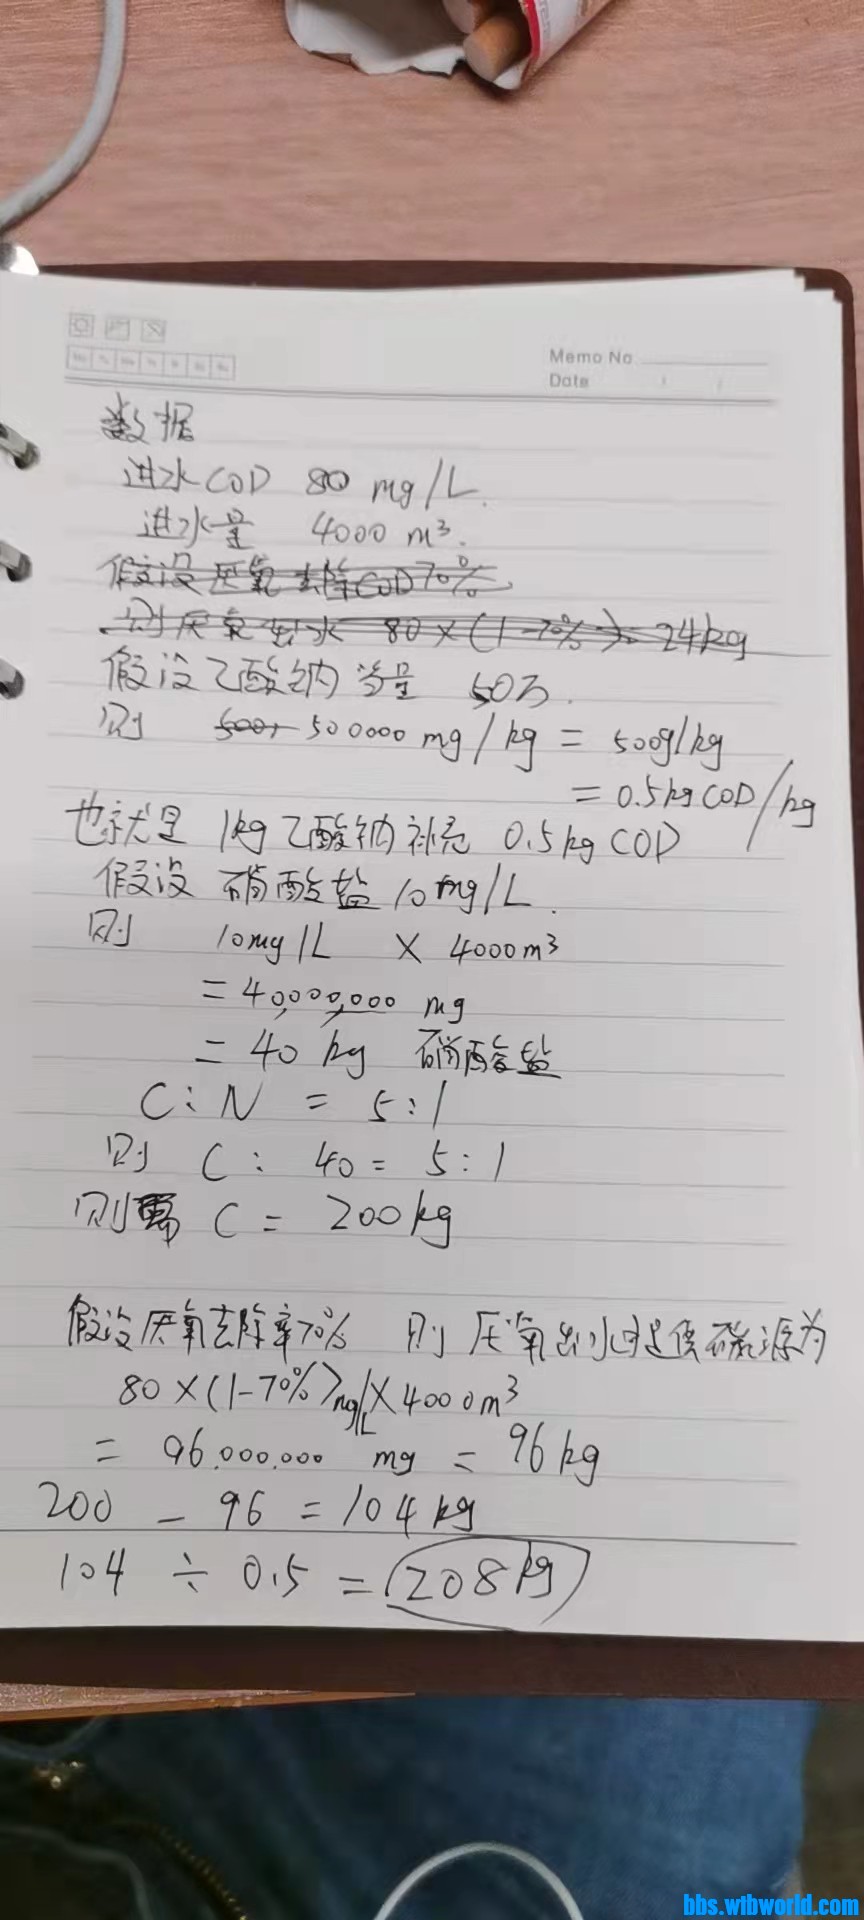 Memo No
Date
数据
进水COD 80 mg/L.
进水量 4000 m³.
假设厌氧去除COD70%
则厌氧出水 80×(1-70%)= 24kg
假设乙酸钠当量 50万.
则 500, 500000 mg/kg = 500g/kg
= 0.5kg COD/kg
也就是 1kg乙酸钠补充 0.5kg COD
假设 硝酸盐 10mg/L.
则 10mg/L × 4000m³
= 40,000,000 mg
= 40 kg 硝酸盐
C:N = 5:1
则 C: 40 = 5:1
则需 C = 200kg
假设厌氧去除率70% 则 厌氧出水提供碳源为
80×(1-70%)mg/L×4000m³
= 96.000.000 mg = 96kg
200 - 96 = 104kg
104 ÷ 0.5 = 208kg
bbs.wtbworld.com